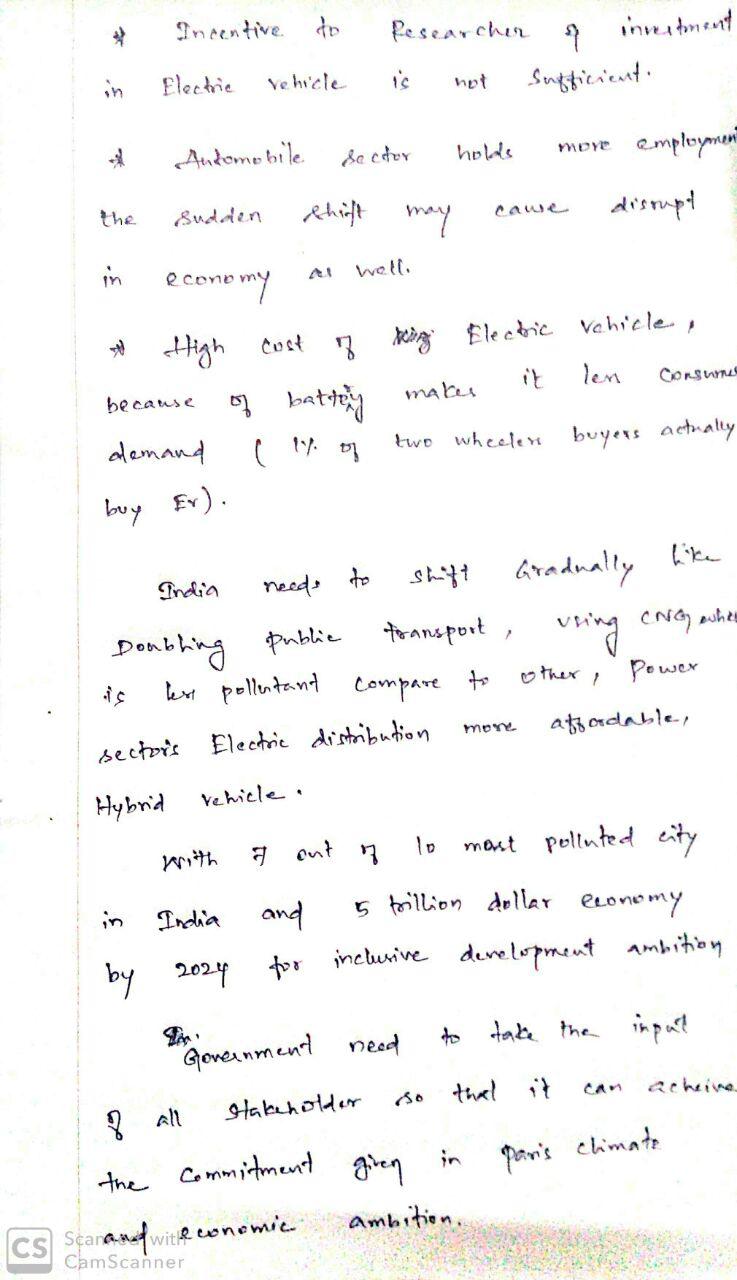 * Incentive to Researcher of investment
in Electric vehicle is not sufficient.
* Automobile sector holds more employment
the sudden shift may cause disrupt
in economy as well.
* High cost of Electric vehicle,
because of battery makes it less consumer
demand ( 1% of two wheelers buyers actually
buy Ev).
India needs to shift Gradually like
Doubling public transport, using CNG
is less pollutant compare to other, Power
sector's Electric distribution more affordable,
Hybrid vehicle.
With 7 out of 10 most polluted city
in India and 5 trillion dollar economy
by 2024 for inclusive development ambition
Government need to take the input
of all stakeholder so that it can acheive
the commitment given in paris climate
and economic ambition.
CS Scanned with
CamScanner